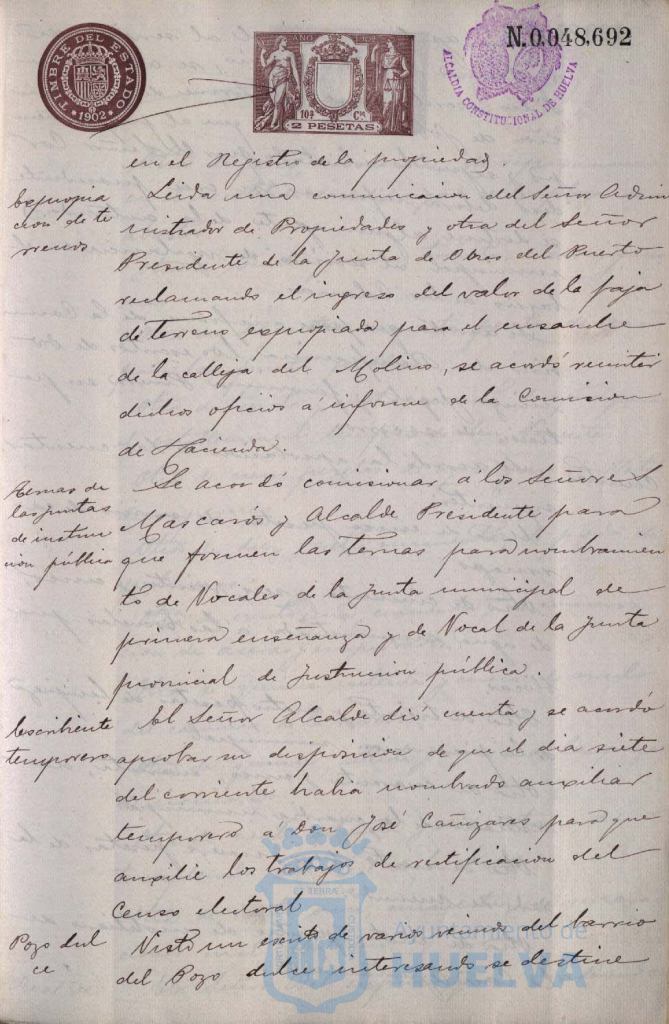 TIMBRE DEL ESTADO
1902
AÑO
10ª Cª
2 PESETAS
N.0.048.692
ALCALDIA CONSTITUCIONAL DE HUELVA
en el Registro de la propiedad.
Expropia
cion de te
rrenos
Leida una comunicacion del Señor Admi
nistrador de Propiedades y otra del Señor
Presidente de la Junta de Obras del Puerto
reclamando el ingreso del valor de la faja
de terreno expropiada para el ensanche
de la calleja del Molino, se acordó remitir
dichos oficios á informe de la Comision
de Hacienda.
Ternas de
las juntas
de instruc
cion pública
Se acordó comisionar á los Señores
Mascarós y Alcalde Presidente para
que formen las ternas para nombramien
to de Vocales de la Junta municipal de
primera enseñanza y de Vocal de la Junta
provincial de Instruccion pública.
Escribiente
temporero
El Señor Alcalde dió cuenta y se acordó
aprobar su disposicion de que el dia siete
del corriente habia nombrado auxiliar
temporero á Don José Cañizares para que
auxilie los trabajos de rectificacion del
Censo electoral
Pozo dul
ce
Visto un escrito de varios vecinos del barrio
del Pozo dulce interesando se destine
Ayuntamiento de
HUELVA